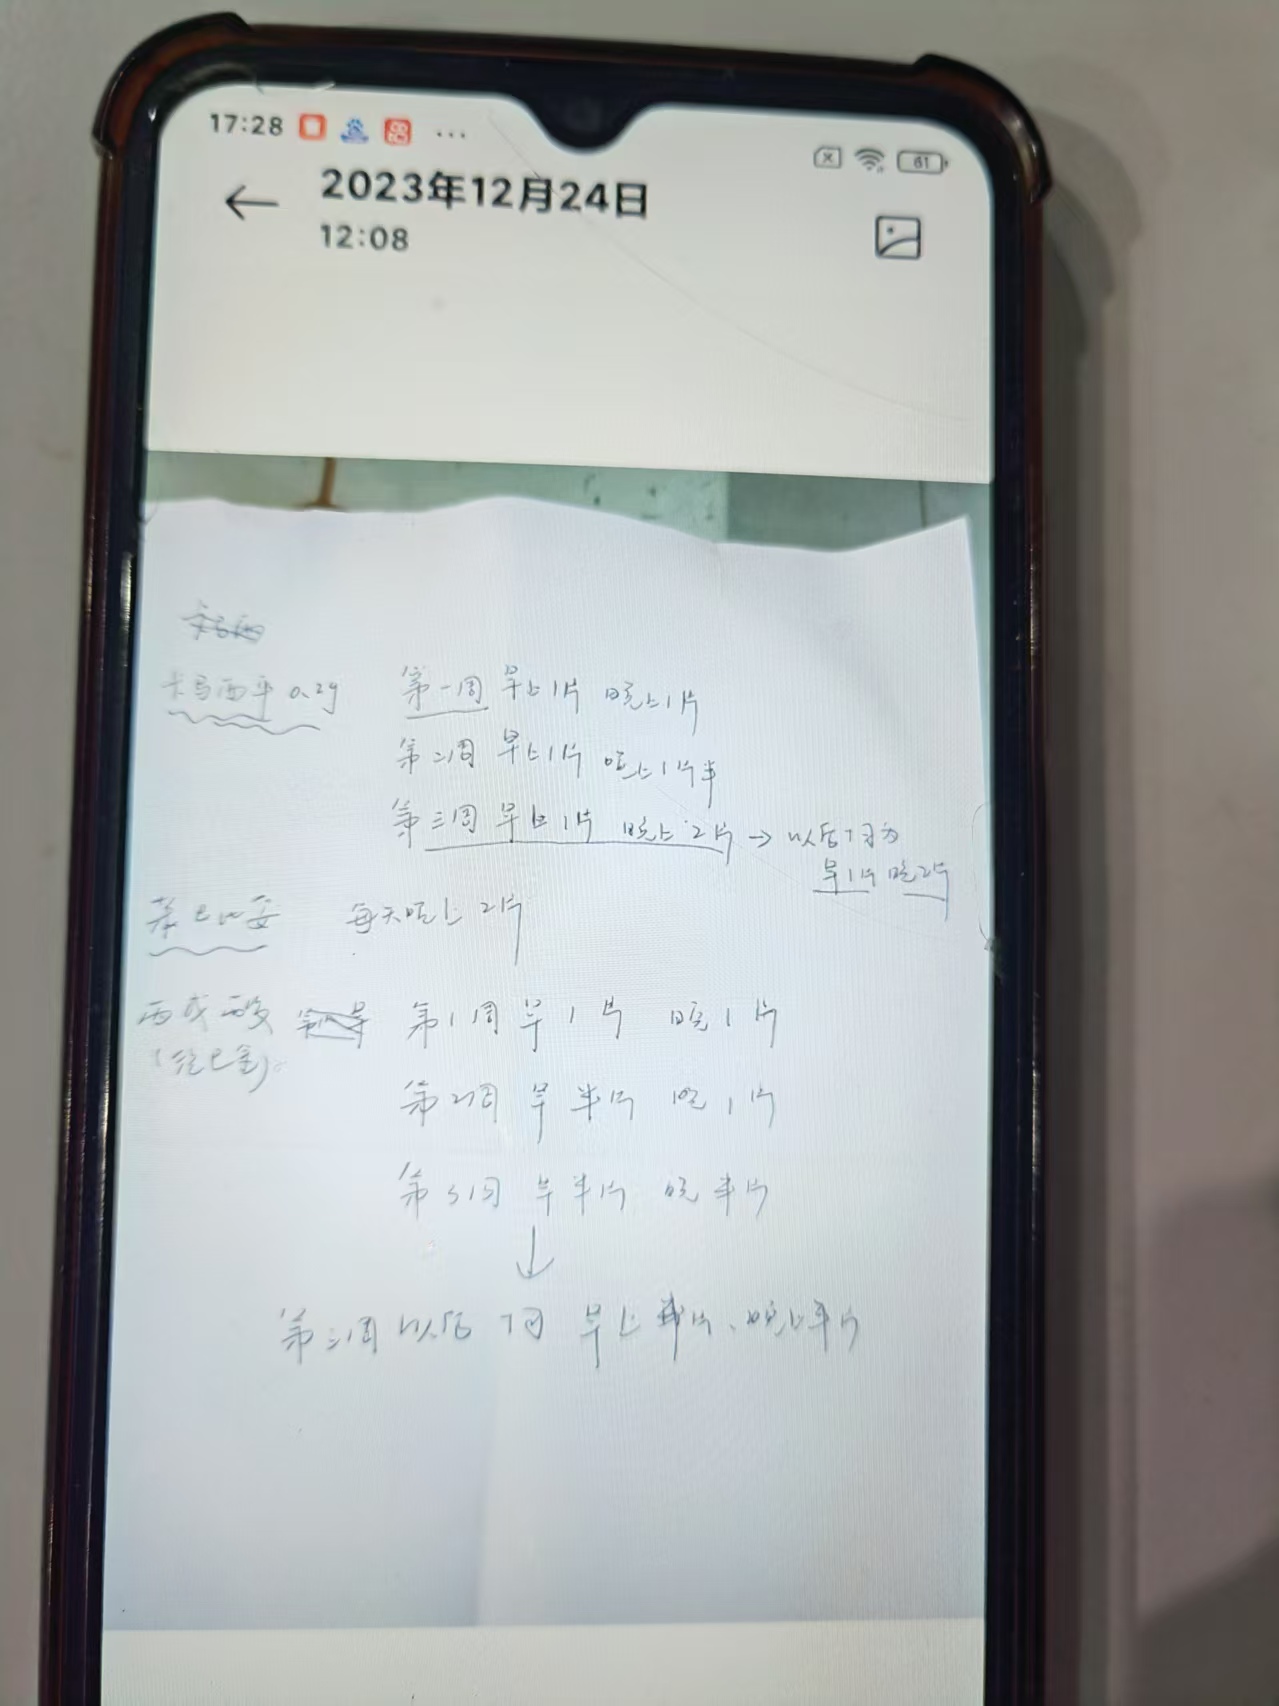 17:28 ... 61
2023年12月24日
12:08
卡马西
卡马西平 0.2g 第一周 早上1片 晚上1片
第二周 早上1片 晚上1片半
第三周 早上1片 晚上2片 → 以后1日为
早1片 晚2片
苯巴比妥 每天晚上2片
丙戊酸 第1周 早1片 晚1片
第2周 早半片 晚1片
第3周 早半片 晚半片
↓
第三周以后 早上半片、晚上半片